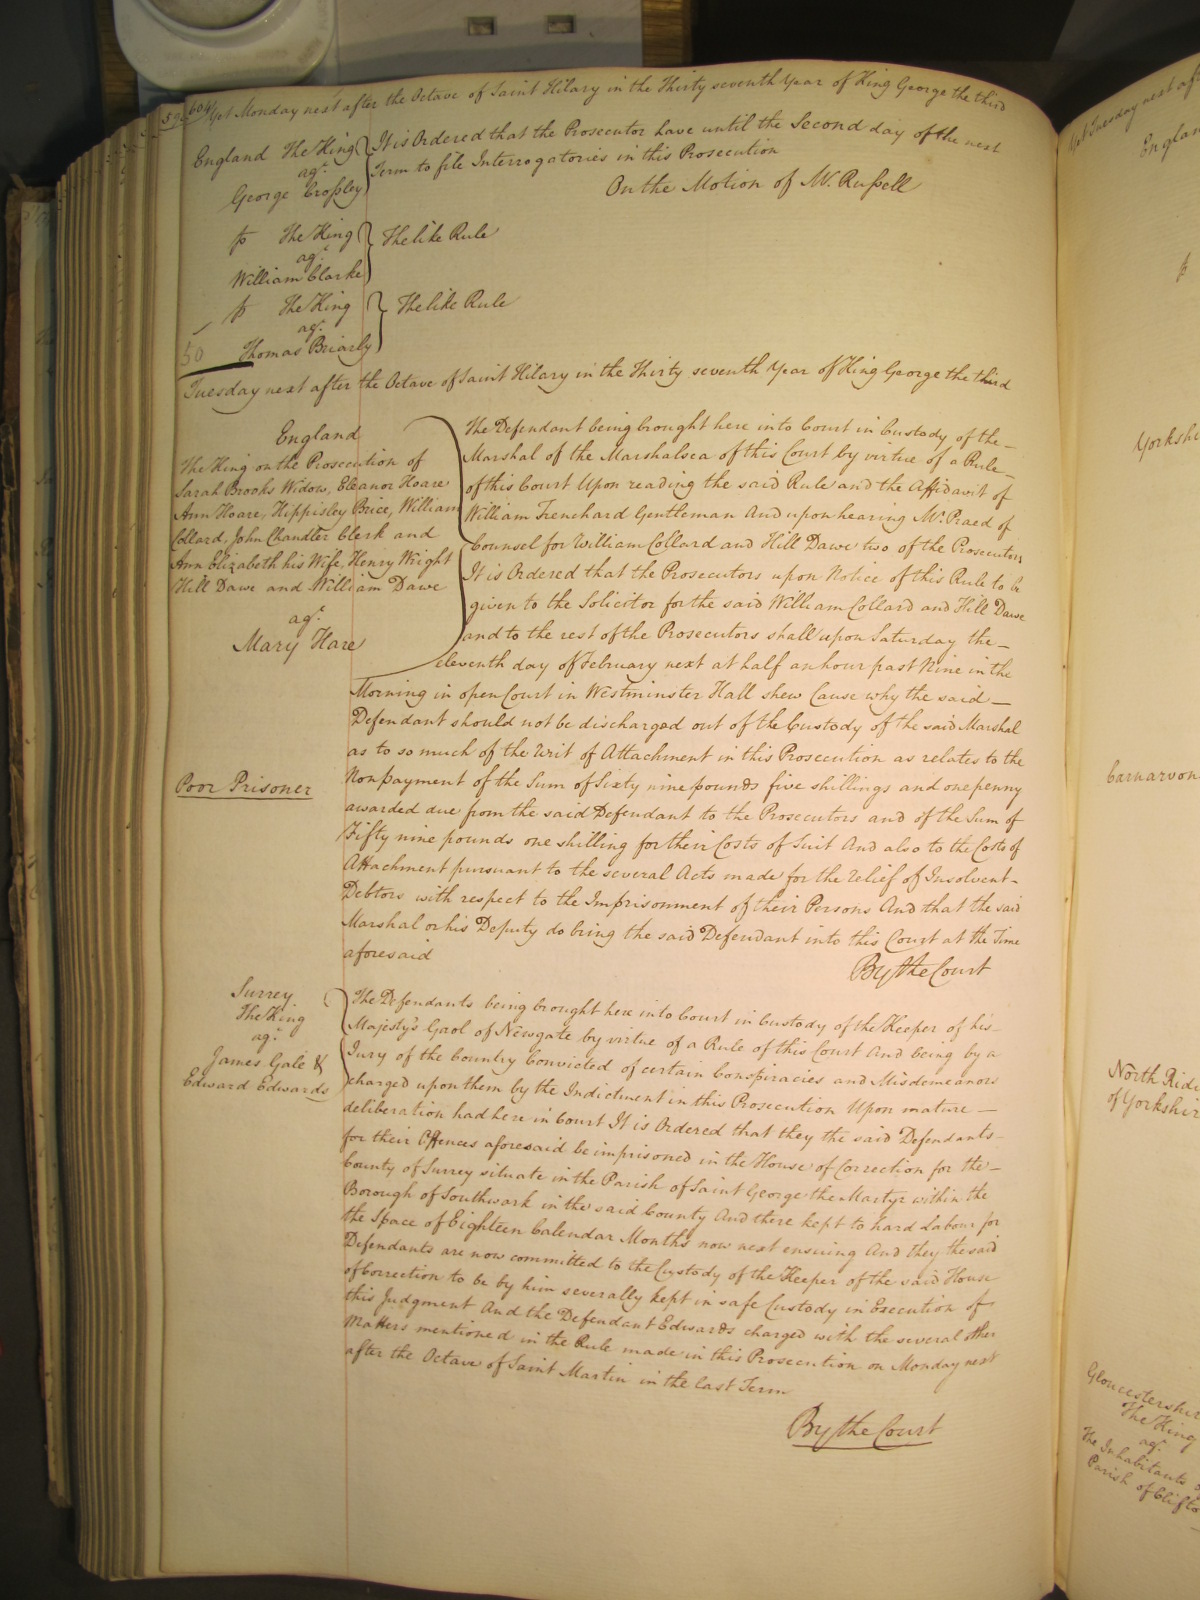 604 Yet Monday next after the Octave of Saint Hilary in the Thirty seventh Year of King George the third
England The King
agt.
George Crossley
It is Ordered that the Prosecutor have until the Second day of the next
Term to file Interrogatories in this Prosecution
On the Motion of Mr. Russell
The King
agt.
William Clarke
The like Rule
The King
agt.
Thomas Briarly
The like Rule
50
Tuesday next after the Octave of Saint Hilary in the Thirty seventh Year of King George the third
England
The King on the Prosecution of
Sarah Brooks Widow, Eleanor Hoare
Ann Hoare, Hippisley Brice, William
Collard, John Chandler Clerk and
Ann Elizabeth his Wife, Henry Wright
Hill Dawe and William Dawe
agt.
Mary Hare
The Defendant being brought here into Court in Custody of the
Marshal of the Marshalsea of this Court by virtue of a Rule
of this Court Upon reading the said Rule and the Affidavit of
William Trenchard Gentleman And upon hearing Mr. Praed of
Counsel for William Collard and Hill Dawe two of the Prosecutors
It is Ordered that the Prosecutors upon Notice of this Rule to be
given to the Solicitor for the said William Collard and Hill Dawe
and to the rest of the Prosecutors shall upon Saturday the
eleventh day of February next at half an hour past Nine in the
Morning in open Court in Westminster Hall shew Cause why the said
Defendant should not be discharged out of the Custody of the said Marshal
as to so much of the Writ of Attachment in this Prosecution as relates to the
Nonpayment of the Sum of Sixty nine pounds five shillings and one penny
awarded due from the said Defendant to the Prosecutors and of the Sum of
Fifty nine pounds one shilling for their Costs of Suit And also to the Costs of
Attachment pursuant to the several Acts made for the relief of Insolvent
Debtors with respect to the Imprisonment of their Persons And that the said
Marshal or his Deputy do bring the said Defendant into this Court at the Time
aforesaid
By the Court
Poor Prisoner
Surrey
The King
agt.
James Gale &
Edward Edwards
The Defendants being brought here into Court in Custody of the Keeper of his
Majesty's Gaol of Newgate by virtue of a Rule of this Court And being by a
Jury of the Country Convicted of certain Conspiracies and Misdemeanors
charged upon them by the Indictment in this Prosecution Upon mature
deliberation had here in Court It is Ordered that they the said Defendants
for their Offences aforesaid be imprisoned in the House of Correction for the
County of Surrey situate in the Parish of Saint George the Martyr within the
Borough of Southwark in the said County And there kept to hard Labour for
the Space of Eighteen Calendar Months now next ensuing And they the said
Defendants are now committed to the Custody of the Keeper of the said House
of Correction to be by him severally kept in safe Custody in Execution of
this Judgment And the Defendant Edwards charged with the several other
Matters mentioned in the Rule made in this Prosecution on Monday next
after the Octave of Saint Martin in the last Term
By the Court
Yet Tuesday next af
Englan
Yorkshi
Carnarvon
North Ridi
of Yorkshir
Gloucestershir
The King
agt.
The Inhabitants o
Parish of Clifto